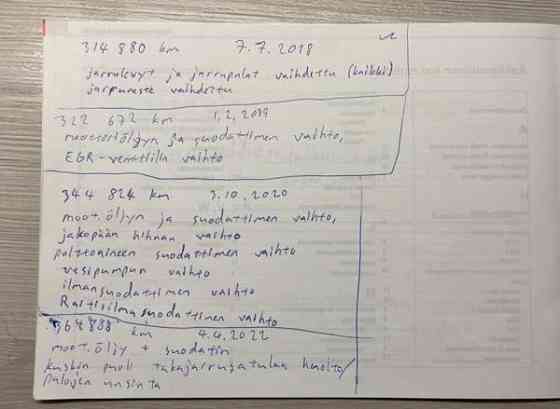 314 880 km 7.7.2018
jarrulevyt ja jarrupalat vaihdettu (kaikki)
jarruneste vaihdettu
322 672 km 1.2.2019
moottoriöljyn ja suodattimen vaihto,
EGR-venttiilin vaihto
344 824 km 3.10.2020
moot.öljyn ja suodattimen vaihto,
jakopään hihnan vaihto
polttoaineen suodattimen vaihto
vesipumpun vaihto
ilmansuodattimen vaihto
Raitisilmasuodattimen vaihto
km 4.4.2022
moot.öljy + suodatin
kuskin puol. takajarrusatulan huolto/
palojen uusinta